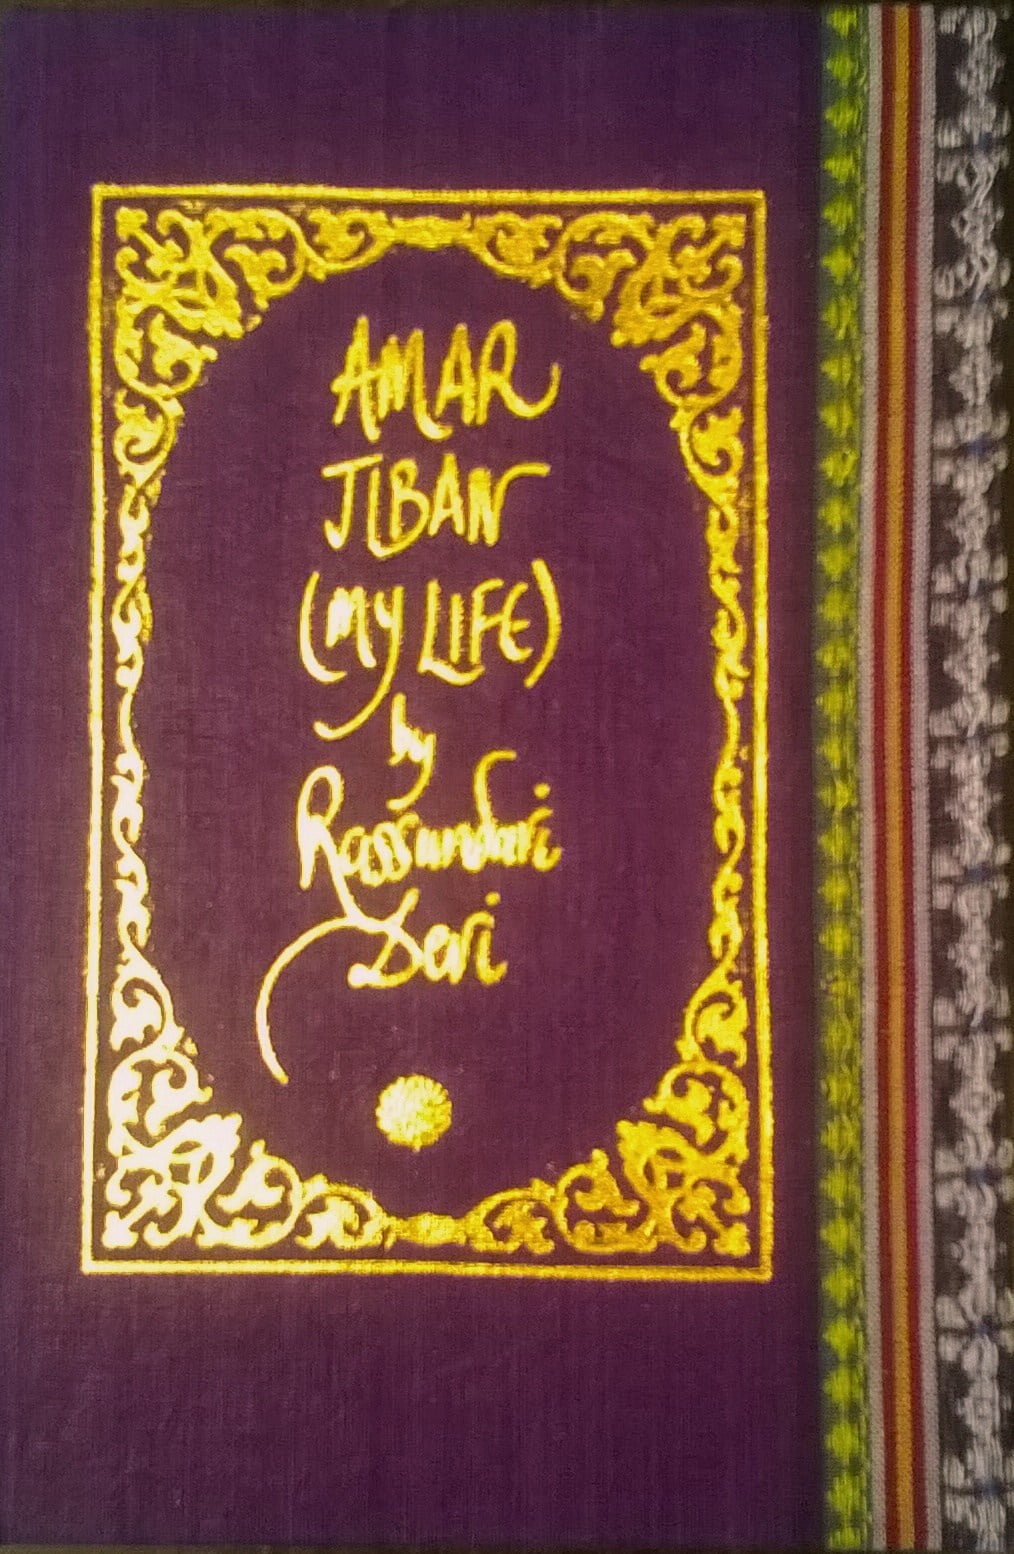 AMAR
JIBAN
(MY LIFE)
by
Rassundari
Devi